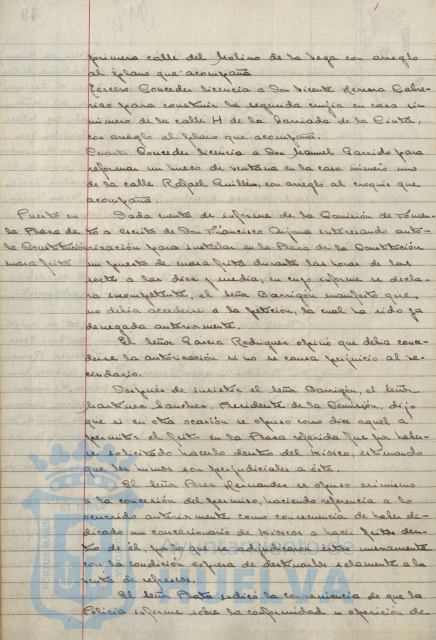 primera calle del Molino de la Vega con arreglo
al plano que acompaña
Tercero Conceder licencia a Don Vicente Herrera Cabre-
rizo para construir la segunda crujía en casa sin
número de la calle H de la Barriada de la Cinta,
con arreglo al plano que acompaña.
Cuarto Conceder licencia a Don Manuel Garrido para
reformar un hueco de ventana en la casa número uno
de la calle Rafael Guillén, con arreglo al croquis que
acompaña.
Puesto en
la Plaza de
la Constitución
masa frita
Dada cuenta de informe de la Comisión de Fomen-
to a escrito de Don Francisco Arjona interesando auto-
rización para instalar en la Plaza de la Constitución
un puesto de masa frita durante las horas de las
siete a las diez y media, en cuyo informe se decla-
ra incompetente, el Señor Barrigón manifestó que
no debía accederse a la petición, la cual ha sido ya
denegada anteriormente.
El Señor Garcia Rodriguez opinó que debía conce-
derse la autorización si no se causa perjuicio al ve-
cindario.
Después de insistir el Señor Barrigón, el Señor
Martinez Sanchez, Presidente de la Comisión, dijo
que si en otra ocasión se opuso como dice aquel a
permitir el frito en la Plaza referida fué por haber-
se solicitado hacerlo dentro del kiosco, estimando
que los humos son perjudiciales a éste.
El Señor Perez Hernandez se opuso asimismo
a la concesión del permiso, haciendo referencia a lo
ocurrido anteriormente como consecuencia de haber de-
dicado un concesionario de kioscos a hacer fritos den-
tro de él, por lo que se adjudicaron estos nuevamente
con la condición expresa de destinarlos solamente a la
venta de refrescos.
El Señor Plata indicó la conveniencia de que la
Policía informe sobre la conformidad u oposición de
PORTUS MARIS ET TERRAE
Ayuntamiento de
HUELVA